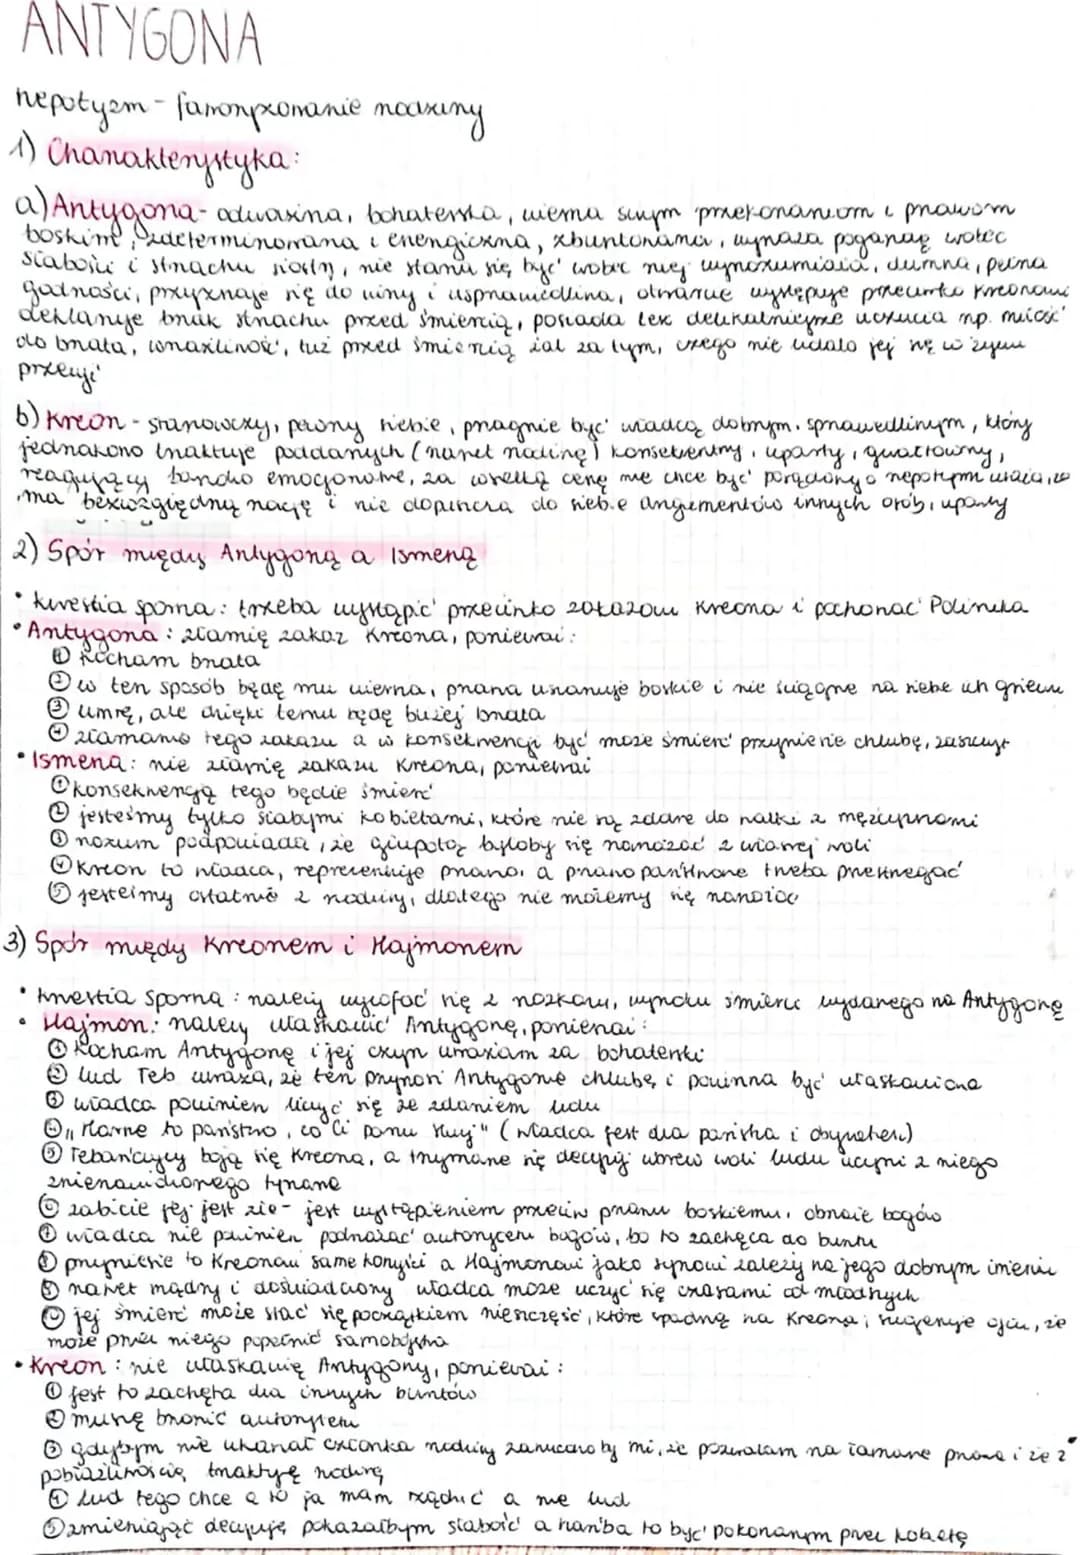 ANTYGONA
nepotyzm - faworyzowanie rodziny
1) Charakterystyka:
a) Antygona - odważna, bohaterska, wierna swym przekonaniom i prawom
boskim, zdeterminowana i energiczna, zbuntowana, wyraża pogardę wobec
słabości i strachu siostry, nie stara się być wobec niej wyrozumiała, dumna, pełna
godności, przyznaje się do winy i usprawiedliwia, otwarcie występuje przeciwko Kreonowi
deklaruje brak strachu przed śmiercią, posiada też delikatniejsze uczucia np. miłość
do brata, wrażliwość, tuż przed śmiercią żal za tym, czego nie udało jej się w życiu
przeżyć
b) Kreon - stanowczy, pewny siebie, pragnie być władcą dobrym, sprawiedliwym, który
jednakowo traktuje poddanych (nawet rodzinę) konsekwentny, uparty, gwałtowny,
reagujący bardzo emocjonalnie, za wszelką cenę nie chce być posądzony o nepotyzm uważa, że
ma bezwzględną rację i nie dopuszcza do siebie argumentów innych osób, uparty
2) Spór między Antygoną a Ismeną
• kwestia sporna: trzeba wystąpić przeciwko zakazowi Kreona i pochować Polinika
• Antygona: złamię zakaz Kreona, ponieważ:
① kocham brata
② w ten sposób będę mu wierna, prawa uszanuję boskie i nie ściągnę na siebie ich gniewu
③ umrę, ale dzięki temu będę bliżej brata
④ złamanie tego zakazu a w konsekwencji być może śmierć przyniesie chlubę, zaszczyt
• Ismena: nie złamię zakazu Kreona, ponieważ
① konsekwencją tego będzie śmierć
② jesteśmy tylko słabymi kobietami, które nie są zdolne do walki z mężczyznami
③ rozum podpowiada, że głupotą byłoby się narażać z własnej woli
④ Kreon to władca, reprezentuje prawo, a prawo państwowe trzeba przestrzegać
⑤ jesteśmy ostatnie z rodziny, dlatego nie możemy się narażać
3) Spór między Kreonem i Hajmonem
• kwestia sporna: należy wycofać się z rozkazu, wyroku śmierci wydanego na Antygonę
• Hajmon: należy ułaskawić Antygonę, ponieważ:
① kocham Antygonę i jej czyn uważam za bohaterski
② lud Teb uważa, że ten przynosi Antygonie chlubę i powinna być ułaskawiona
③ władca powinien liczyć się ze zdaniem ludu
④ „Marne to państwo, co ci panu służy" (władca jest dla państwa i obywateli)
⑤ Tebańczycy boją się Kreona, a trzymanie się decyzji wbrew woli ludu uczyni z niego
znienawidzonego tyrana
⑥ zabicie jej jest złe - jest wystąpieniem przeciw prawu boskiemu, obrazie bogów
⑦ władca nie powinien podważać autorytetu bogów, bo to zachęca do buntu
⑧ przyniesie to Kreonowi same korzyści a Hajmonowi jako synowi zależy na jego dobrym imieniu
⑨ nawet mądry i doświadczony władca może uczyć się czasami od młodszych
⑩ jej śmierć może stać się początkiem nieszczęść, które spadną na Kreona; sugeruje ojcu, że
może przez niego popełnić samobójstwo
• Kreon: nie ułaskawię Antygony, ponieważ:
① jest to zachęta dla innych buntów
② muszę bronić autorytetu
③ gdybym nie ukarał członka rodziny zarzucano by mi, że pozwalam na łamanie prawa i że z
pobłażliwością traktuję rodzinę
④ lud tego chce a to ja mam rządzić a nie lud
⑤ zmieniając decyzję pokazałbym słabość a hańba to być pokonanym przez kobietę